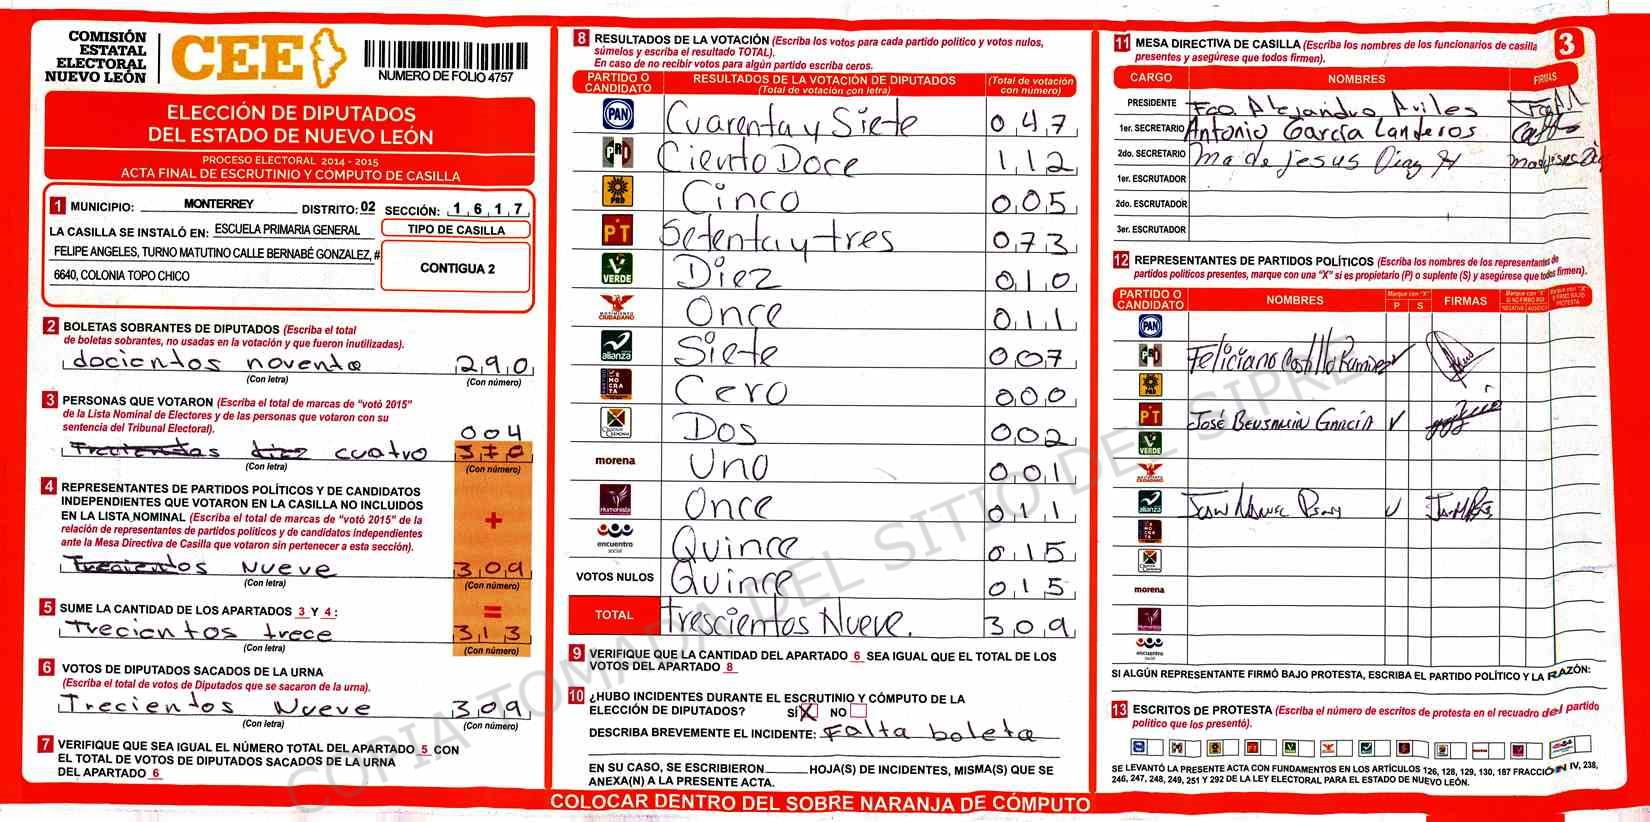 COMISIÓN
ESTATAL
ELECTORAL
NUEVO LEÓN
CEE
NUMERO DE FOLIO 4757
ELECCIÓN DE DIPUTADOS
DEL ESTADO DE NUEVO LEÓN
PROCESO ELECTORAL 2014 - 2015
ACTA FINAL DE ESCRUTINIO Y CÓMPUTO DE CASILLA
1 MUNICIPIO: MONTERREY DISTRITO: 02 SECCIÓN: 1 6 1 7
LA CASILLA SE INSTALÓ EN: ESCUELA PRIMARIA GENERAL
FELIPE ANGELES, TURNO MATUTINO CALLE BERNABÉ GONZALEZ, #
6640, COLONIA TOPO CHICO
TIPO DE CASILLA
CONTIGUA 2
2 BOLETAS SOBRANTES DE DIPUTADOS (Escriba el total
de boletas sobrantes, no usadas en la votación y que fueron inutilizadas).
docientos noventa 290
(Con letra) (Con número)
3 PERSONAS QUE VOTARON (Escriba el total de marcas de "votó 2015"
de la Lista Nominal de Electores y de las personas que votaron con su
sentencia del Tribunal Electoral).
004
cuatro
(Con letra) (Con número)
4 REPRESENTANTES DE PARTIDOS POLÍTICOS Y DE CANDIDATOS
INDEPENDIENTES QUE VOTARON EN LA CASILLA NO INCLUIDOS
EN LA LISTA NOMINAL (Escriba el total de marcas de "votó 2015" de la
relación de representantes de partidos políticos y de candidatos independientes
ante la Mesa Directiva de Casilla que votaron sin pertenecer a esta sección).
+
Trecientos Nueve 309
(Con letra) (Con número)
=
5 SUME LA CANTIDAD DE LOS APARTADOS 3 Y 4:
Trecientos trece 313
(Con letra) (Con número)
6 VOTOS DE DIPUTADOS SACADOS DE LA URNA
(Escriba el total de votos de Diputados que se sacaron de la urna).
Trecientos Nueve 309
(Con letra) (Con número)
7 VERIFIQUE QUE SEA IGUAL EL NÚMERO TOTAL DEL APARTADO 5 CON
EL TOTAL DE VOTOS DE DIPUTADOS SACADOS DE LA URNA
DEL APARTADO 6
8 RESULTADOS DE LA VOTACIÓN (Escriba los votos para cada partido político y votos nulos,
súmelos y escriba el resultado TOTAL).
En caso de no recibir votos para algún partido escriba ceros.
PARTIDO O CANDIDATO RESULTADOS DE LA VOTACIÓN DE DIPUTADOS (Total de votación con letra) (Total de votación con número)
PAN Cuarenta y Siete 047
PRI Ciento Doce 112
PRD Cinco 005
PT Setenta y tres 073
VERDE Diez 010
MOVIMIENTO CIUDADANO Once 011
alianza Siete 007
DEMOCRATA Cero 000
Dos 002
morena Uno 001
Humanista Once 011
encuentro social Quince 015
VOTOS NULOS Quince 015
TOTAL trescientos Nueve. 309
9 VERIFIQUE QUE LA CANTIDAD DEL APARTADO 6 SEA IGUAL QUE EL TOTAL DE LOS
VOTOS DEL APARTADO 8
10 ¿HUBO INCIDENTES DURANTE EL ESCRUTINIO Y CÓMPUTO DE LA
ELECCIÓN DE DIPUTADOS? SÍ X NO
DESCRIBA BREVEMENTE EL INCIDENTE: Falta boleta
EN SU CASO, SE ESCRIBIERON HOJA(S) DE INCIDENTES, MISMA(S) QUE SE
ANEXA(N) A LA PRESENTE ACTA.
COLOCAR DENTRO DEL SOBRE NARANJA DE CÓMPUTO
11 MESA DIRECTIVA DE CASILLA (Escriba los nombres de los funcionarios de casilla
presentes y asegúrese que todos firmen).
3
CARGO NOMBRES FIRMAS
PRESIDENTE Fco. Alejandro Aviles
1er. SECRETARIO Antonio García Landeros
2do. SECRETARIO Ma de Jesus Diaz H
1er. ESCRUTADOR
2do. ESCRUTADOR
3er. ESCRUTADOR
12 REPRESENTANTES DE PARTIDOS POLÍTICOS (Escriba los nombres de los representantes de
partidos políticos presentes, marque con una "X" si es propietario (P) o suplente (S) y asegúrese que todos firmen).
PARTIDO O CANDIDATO NOMBRES Marque con "X" P S FIRMAS
PAN
PRI Feliciano Castillo Ramirez
PRD
PT José Bensamin García
VERDE
alianza
morena
encuentro social
SI ALGÚN REPRESENTANTE FIRMÓ BAJO PROTESTA, ESCRIBA EL PARTIDO POLÍTICO Y LA RAZÓN:
13 ESCRITOS DE PROTESTA (Escriba el número de escritos de protesta en el recuadro del partido
político que los presentó).
SE LEVANTÓ LA PRESENTE ACTA CON FUNDAMENTOS EN LOS ARTÍCULOS 126, 128, 129, 130, 187 FRACCIÓN IV, 238,
246, 247, 248, 249, 251 Y 292 DE LA LEY ELECTORAL PARA EL ESTADO DE NUEVO LEÓN.
COPIA TOMADA DEL SITIO DEL SIPRE